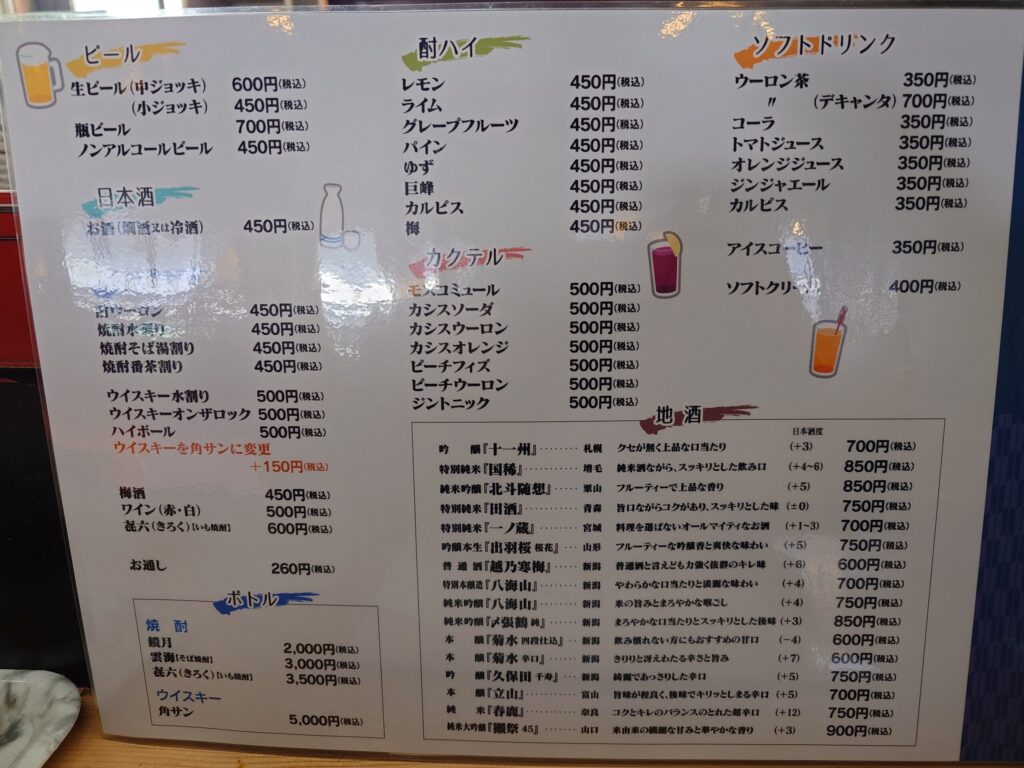 ビール
生ビール(中ジョッキ) 600円(税込)
(小ジョッキ) 450円(税込)
瓶ビール 700円(税込)
ノンアルコールビール 450円(税込)
日本酒
お酒(燗酒又は冷酒) 450円(税込)
酎ウーロン 450円(税込)
焼酎水割り 450円(税込)
焼酎そば湯割り 450円(税込)
焼酎番茶割り 450円(税込)
ウイスキー水割り 500円(税込)
ウイスキーオンザロック 500円(税込)
ハイボール 500円(税込)
ウイスキーを角サンに変更
+150円(税込)
梅酒 450円(税込)
ワイン(赤・白) 500円(税込)
㐂六(きろく)[いも焼酎] 600円(税込)
お通し 260円(税込)
ボトル
焼酎
鏡月 2,000円(税込)
雲海[そば焼酎] 3,000円(税込)
㐂六(きろく)[いも焼酎] 3,500円(税込)
ウイスキー
角サン 5,000円(税込)
酎ハイ
レモン 450円(税込)
ライム 450円(税込)
グレープフルーツ 450円(税込)
パイン 450円(税込)
ゆず 450円(税込)
巨峰 450円(税込)
カルピス 450円(税込)
梅 450円(税込)
カクテル
モスコミュール 500円(税込)
カシスソーダ 500円(税込)
カシスウーロン 500円(税込)
カシスオレンジ 500円(税込)
ピーチフィズ 500円(税込)
ピーチウーロン 500円(税込)
ジントニック 500円(税込)
ソフトドリンク
ウーロン茶 350円(税込)
〃 (デキャンタ) 700円(税込)
コーラ 350円(税込)
トマトジュース 350円(税込)
オレンジジュース 350円(税込)
ジンジャエール 350円(税込)
カルピス 350円(税込)
アイスコーヒー 350円(税込)
ソフトクリーム 400円(税込)
地酒
日本酒度
吟醸『十一州』········札幌 クセが無く上品な口当たり (+3) 700円(税込)
特別純米『国稀』········増毛 純米酒ながら、スッキリとした飲み口 (+4~6) 850円(税込)
純米吟醸『北斗随想』····栗山 フルーティーで上品な香り (+5) 850円(税込)
特別純米『田酒』········青森 旨口ながらコクがあり、スッキリとした味 (±0) 750円(税込)
特別純米『一ノ蔵』······宮城 料理を選ばないオールマイティなお酒 (+1~3) 700円(税込)
吟醸本生『出羽桜 桜花』···山形 フルーティーな吟醸香と爽快な味わい (+5) 750円(税込)
普通酒『越乃寒梅』····新潟 普通酒と言えども力強く抜群のキレ味 (+6) 600円(税込)
特別本醸造『八海山』······新潟 やわらかな口当たりと淡麗な味わい (+4) 700円(税込)
純米吟醸『八海山』······新潟 米の旨みとまろやかな喉ごし (+4) 750円(税込)
純米吟醸『〆張鶴 純』····新潟 まろやかな口当たりとスッキリとした後味 (+3) 850円(税込)
本醸『菊水 四段仕込』··新潟 飲み慣れない方にもおすすめの甘口 (−4) 600円(税込)
本醸『菊水 辛口』·····新潟 きりりと冴えわたる辛さと旨み (+7) 600円(税込)
吟醸『久保田 千寿』···新潟 綺麗であっさりした辛口 (+5) 750円(税込)
本醸『立山』········富山 旨味が程良く、後味でキリッとしまる辛口 (+5) 700円(税込)
純米『春鹿』········奈良 コクとキレのバランスのとれた超辛口 (+12) 750円(税込)
純米大吟醸『獺祭 45』·····山口 米由来の繊細な甘みと華やかな香り (+3) 900円(税込)